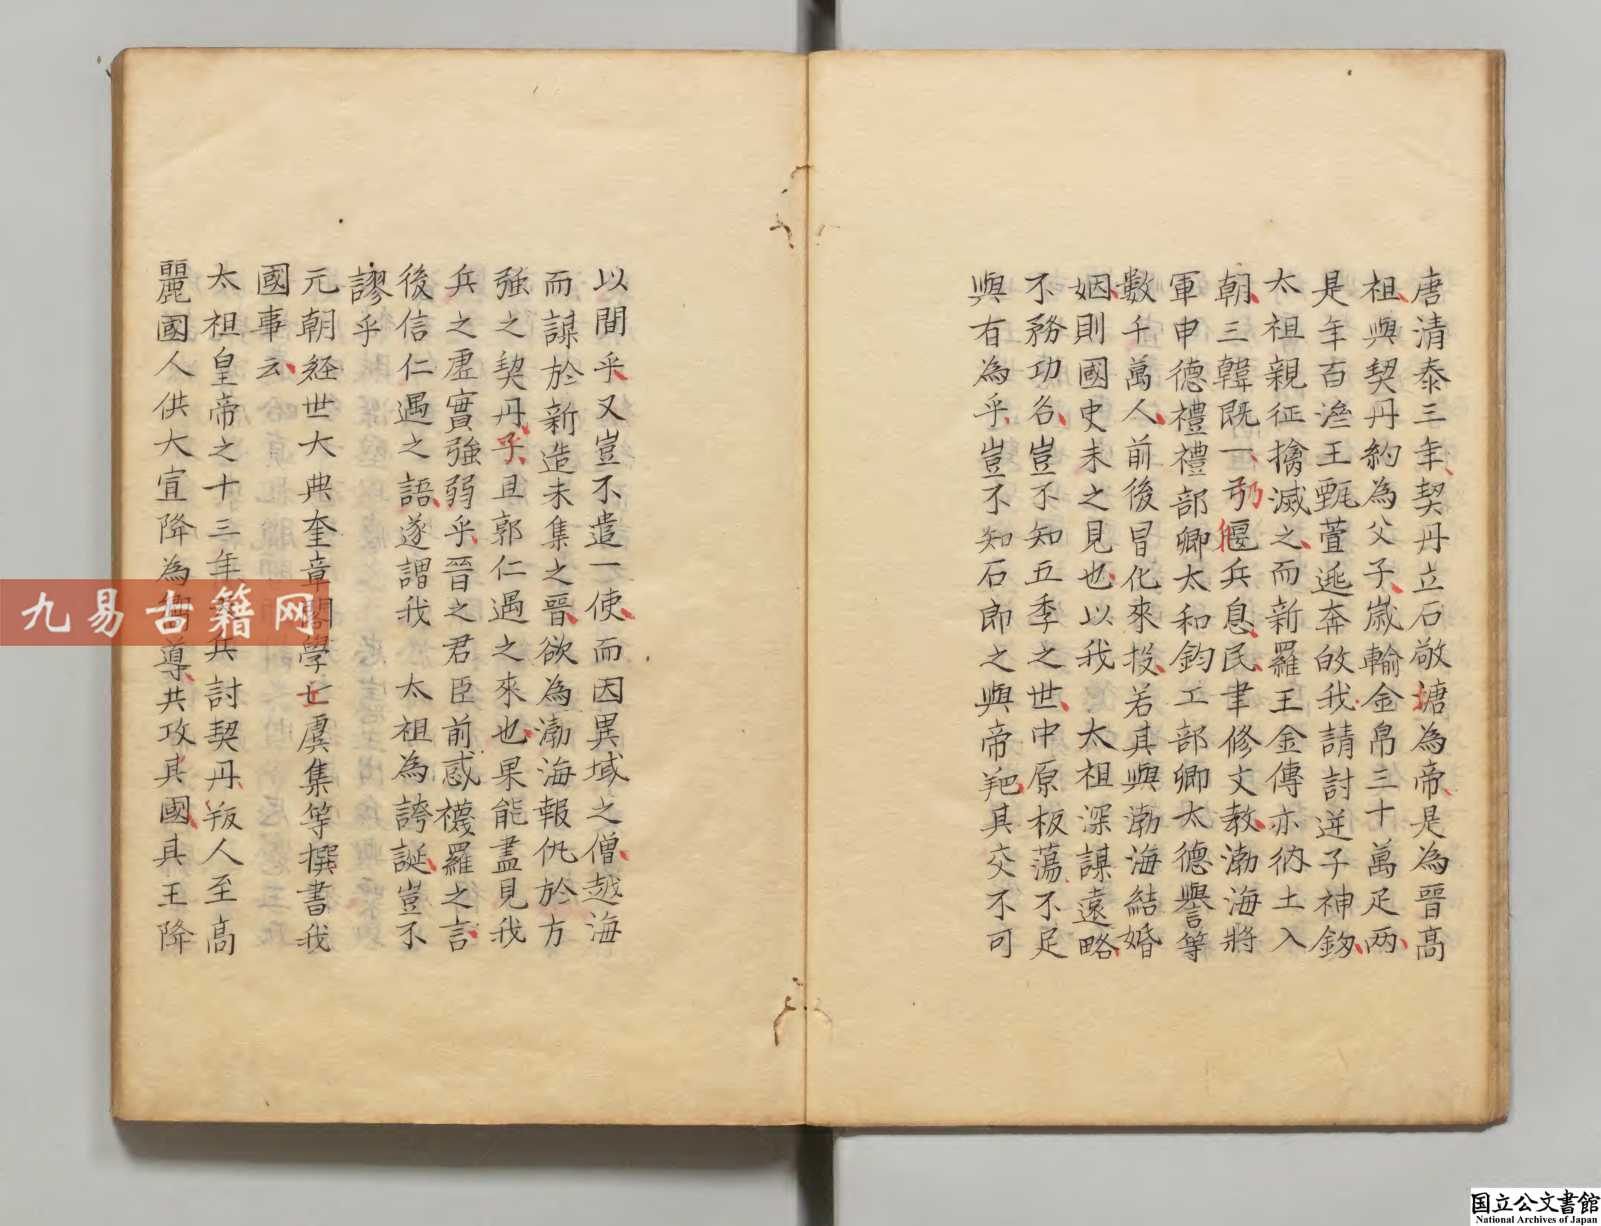 唐清泰三年契丹立石敬塘為帝是為晉高
祖與契丹約為父子歲輸金帛三十萬足两
是年百濟王甄萱逃奔於我請討逆子神釼
太祖親征擒滅之而新羅王金傳亦納土入
朝三韓既一乃偃兵息民聿修文教渤海將
軍申德禮禮部卿太和鈞工部卿大德譽等
數千萬人前後冒化來投若其與渤海結婚
姻則國史未之見也以我 太祖深謀遠略
不務功名豈不知五季之世中原板蕩不足
與有為乎豈不知石郎之與帝羓其交不可
以間乎又豈不遣一使而因異域之僧越海
而謀於新造未集之晉欲為渤海報仇於方
强之契丹乎且郭仁遇之來也果能盡見我
兵之虛實强弱乎晉之君臣前惑襪羅之言
後信仁遇之語遂謂我 太祖為誇誕豈不
謬乎
元朝経世大典奎章閣學士虞集等撰書我
國事云
太祖皇帝之十三年 兵討契丹叛人至高
麗國人供大宣降為 導共攻其國其王降
九易古籍网
国立公文書館
National Archives of Japan